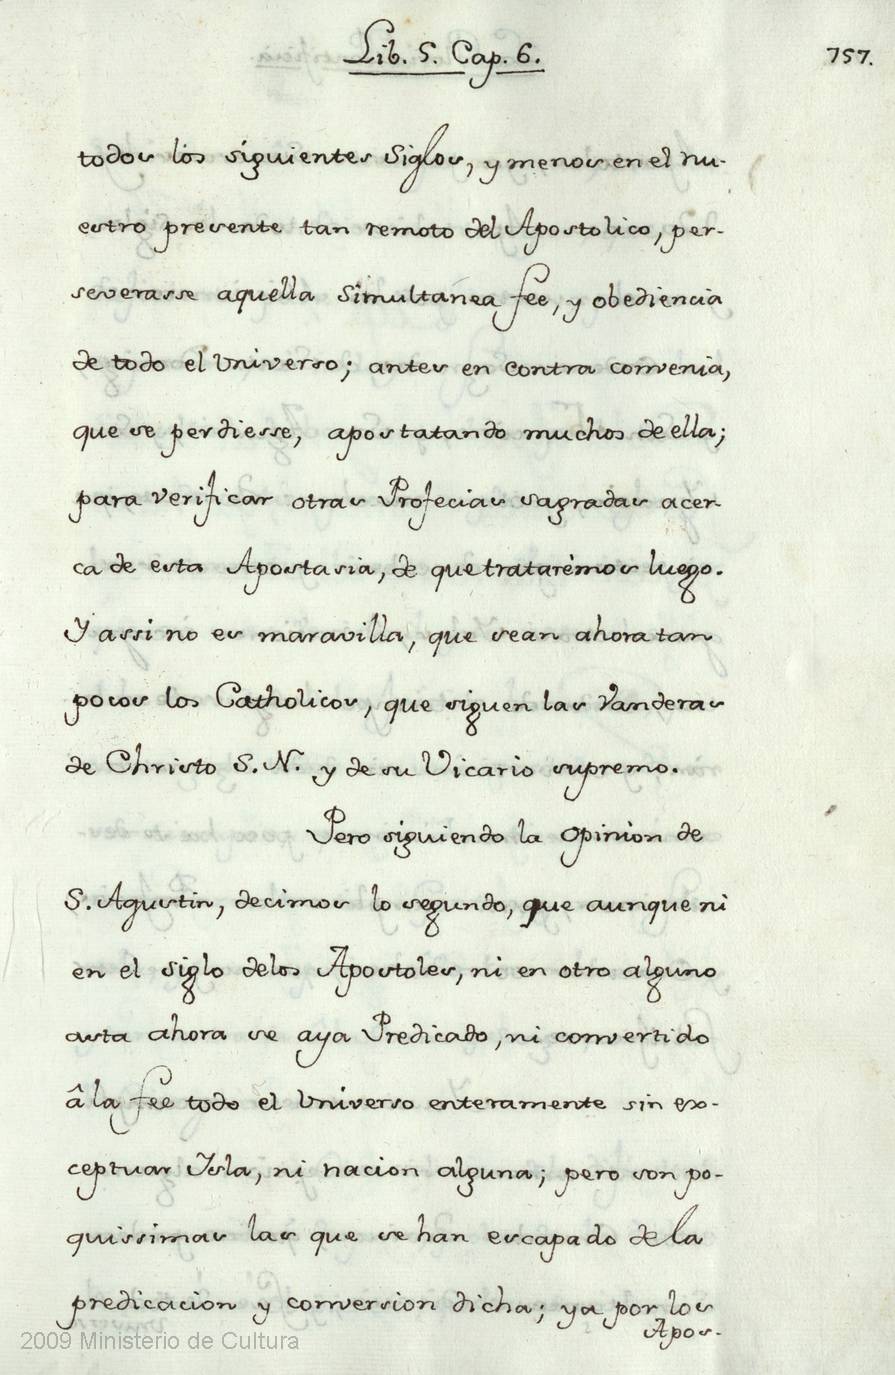 Lib. 5. Cap. 6.
757.
todos los siguientes Siglos, y menos en el nu-
estro presente tan remoto del Apostolico, per-
severasse aquella simultanea fee, y obediencia
de todo el Universo; antes en contra convenia,
que se perdiesse, apostatando muchos de ella;
para verificar otras Profecias sagradas acer-
ca de esta Apostasia, de que tratarémos luego.
Y assi no es maravilla, que sean ahora tan
pocos los Catholicos, que siguen las Vanderas
de Christo S. N. y de su Vicario supremo.
Pero siguiendo la opinion de
S. Agustin, decimos lo segundo, que aunque ni
en el siglo delos Apostoles, ni en otro alguno
asta ahora se aya Predicado, ni convertido
â la fee todo el Universo enteramente sin ex-
ceptuar Ysla, ni nacion alguna; pero son po-
quissimas las que se han escapado de la
predicacion y conversion dicha; ya por los
Apos-
2009 Ministerio de Cultura